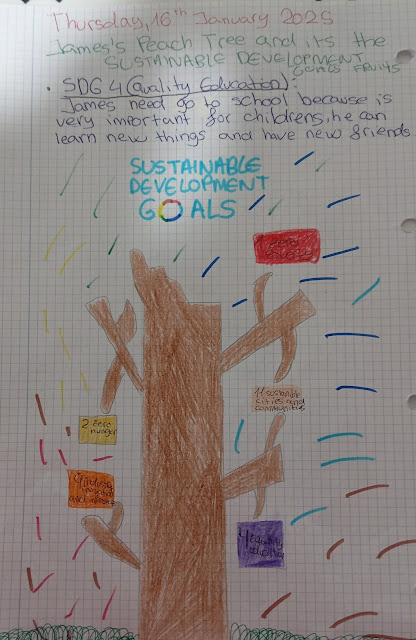 Thursday, 16th January 2025
James's Peach Tree and its the
SUSTAINABLE DEVELOPMENT
GOALS FRUITS
• SDG 4 (Quality Education):
James need go to school because is
very important for childrens, he can
learn new things and have new friends.
SUSTAINABLE
DEVELOPMENT
GOALS
1 zero
11 sustainable
cities and
communities
2 zero
hunger
9 industry
innovation
and
4